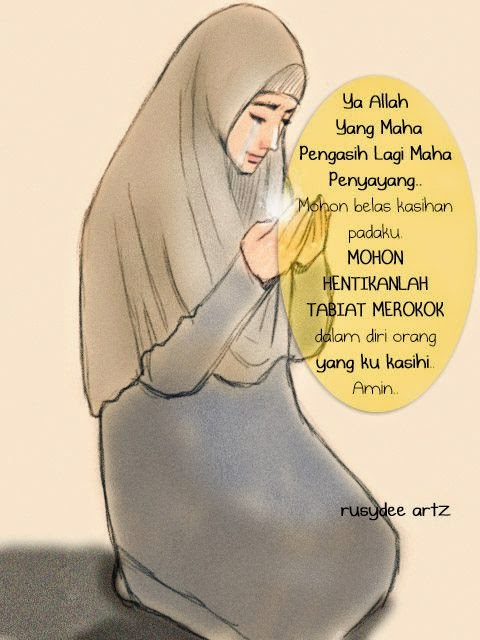 Ya Allah
Yang Maha
Pengasih Lagi Maha
Penyayang..
Mohon belas kasihan
padaku.
MOHON
HENTIKANLAH
TABIAT MEROKOK
dalam diri orang
yang ku kasihi..
Amin..
rusydee artz